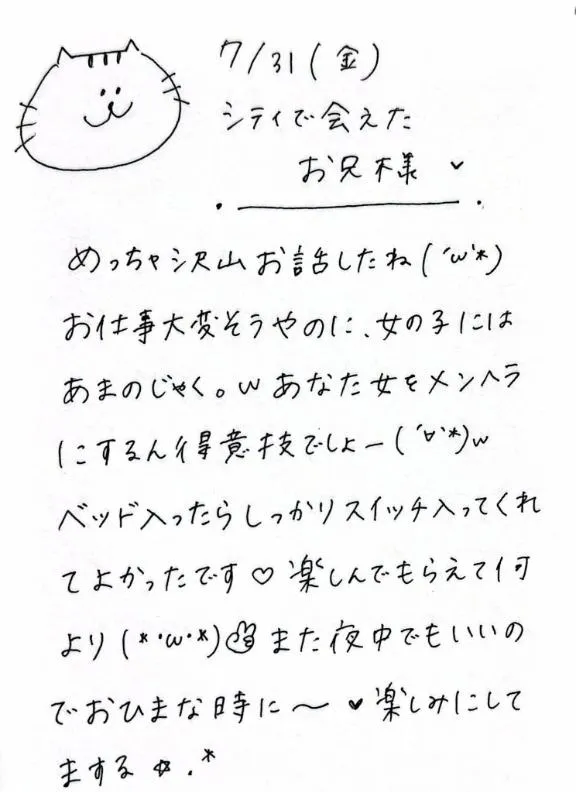 7/31(金)
シティで会えた
お兄様 ♥
めっちゃ沢山お話したね(´ω`*)
お仕事大変そうやのに、女の子には
あまのじゃく。w あなた女をメンヘラ
にするん得意技でしょー(´∀`*)w
ベッド入ったらしっかりスイッチ入ってくれ
てよかったです♡ 楽しんでもらえて何
より(*･ω･*) また夜中でもいいの
でおひまな時に〜 ♥ 楽しみにして
まする ☆.*